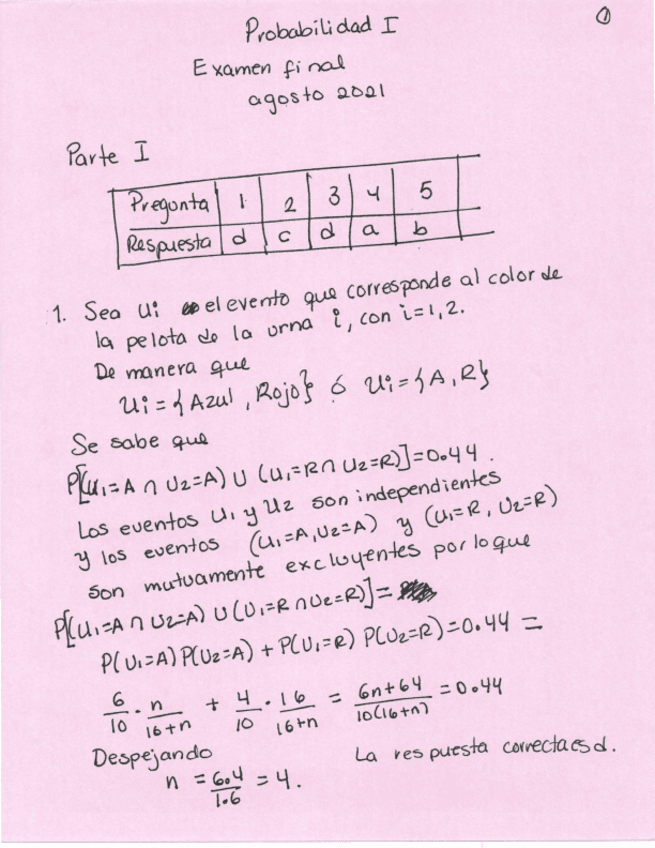 ①
Probabilidad I
Examen final
agosto 2021
Parte I
Pregunta | 1 | 2 | 3 | 4 | 5
Respuesta | d | c | d | a | b
1. Sea Ui el evento que corresponde al color de
la pelota de la urna i, con i=1,2.
De manera que
Ui={Azul, Rojo} ó Ui={A,R}
Se sabe que
P[(U1=A ∩ U2=A) ∪ (U1=R ∩ U2=R)]=0.44.
Los eventos U1 y U2 son independientes
y los eventos (U1=A, U2=A) y (U1=R, U2=R)
son mutuamente excluyentes por lo que
P[(U1=A ∩ U2=A) ∪ (U1=R ∩ U2=R)]=
P(U1=A) P(U2=A) + P(U1=R) P(U2=R)=0.44 =
6/10 · n/16+n + 4/10 · 16/16+n = 6n+64/10(16+n) = 0.44
Despejando La respuesta correcta es d.
n = 6.4/1.6 = 4.